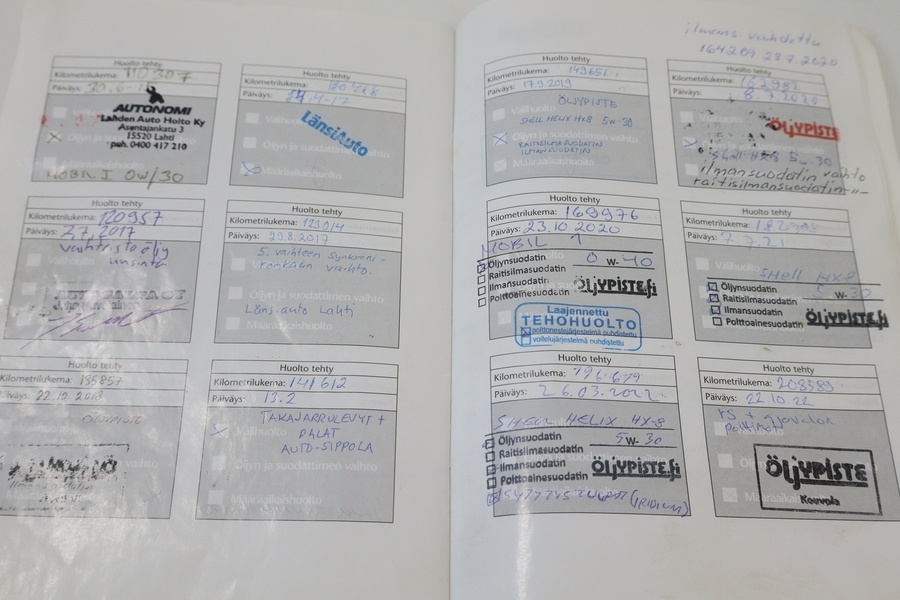 ilmans vaihdettu
164209 28.7.2020
Huolto tehty
Kilometrilukema: 110307
Päiväys: 30.6-1
AUTONOMI
Lahden Auto Hoito Ky
Asentajankatu 3
15520 Lahti
puh. 0400 417 210
MOBIL 1 0W/30
Huolto tehty
Kilometrilukema:
Päiväys: 4-17
LänsiAuto
Öljyn ja suodattimen vaihto
Määräaikaishuolto
Huolto tehty
Kilometrilukema: 120957
Päiväys: 2.7.2017
vaihteistoöljy
uusinta
Huolto tehty
Kilometrilukema: 123014
Päiväys: 29.8.2017
5. vaihteen synkroni-
renkaan vaihto.
Öljyn ja suodattimen vaihto
Länsi-auto Lahti
Määräaikaishuolto
Huolto tehty
Kilometrilukema: 135857
Päiväys: 22.10.2018
ÖLJYPISTE
Huolto tehty
Kilometrilukema: 141612
Päiväys: 13.2
TAKAJARRULEVYT +
PALAT
AUTO-SIPPOLA
Öljyn ja suodattimen vaihto
Määräaikaishuolto
Huolto tehty
Kilometrilukema: 149651
Päiväys: 17.9.2019
ÖLJYPISTE
Välihuolto
SHELL HELIX HX8 5W-30
RAITISILMASUODATIN
ILMANSUODATIN
Määräaikaishuolto
Huolto tehty
Kilometrilukema:
Päiväys: 8.7.2020
ÖLJYPISTE
5W-30
ilmansuodatin vaihto
raitisilmansuodatin -"-
Huolto tehty
Kilometrilukema: 169976
Päiväys: 23.10.2020
MOBIL 1
Öljynsuodatin 0 W-40
Raitisilmasuodatin
Ilmansuodatin
Polttoainesuodatin ÖLJYPISTE.fi
Laajennettu
TEHOHUOLTO
polttonestejärjestelmä puhdistettu
voitelujärjestelmä puhdistettu
Huolto tehty
Kilometrilukema:
Päiväys: 7.21
Välihuolto
SHELL HX-8
Öljynsuodatin 5 W-30
Raitisilmasuodatin
Ilmansuodatin
Polttoainesuodatin ÖLJYPISTE.fi
Huolto tehty
Kilometrilukema: 196679
Päiväys: 26.03.2022
SHELL HELIX HX-8
Öljynsuodatin 5W-30
Raitisilmasuodatin
Ilmansuodatin
Polttoainesuodatin ÖLJYPISTE.fi
(IRIDIUM)
Huolto tehty
Kilometrilukema: 208589
Päiväys: 22.10.22
ÖLJYPISTE
Kouvola